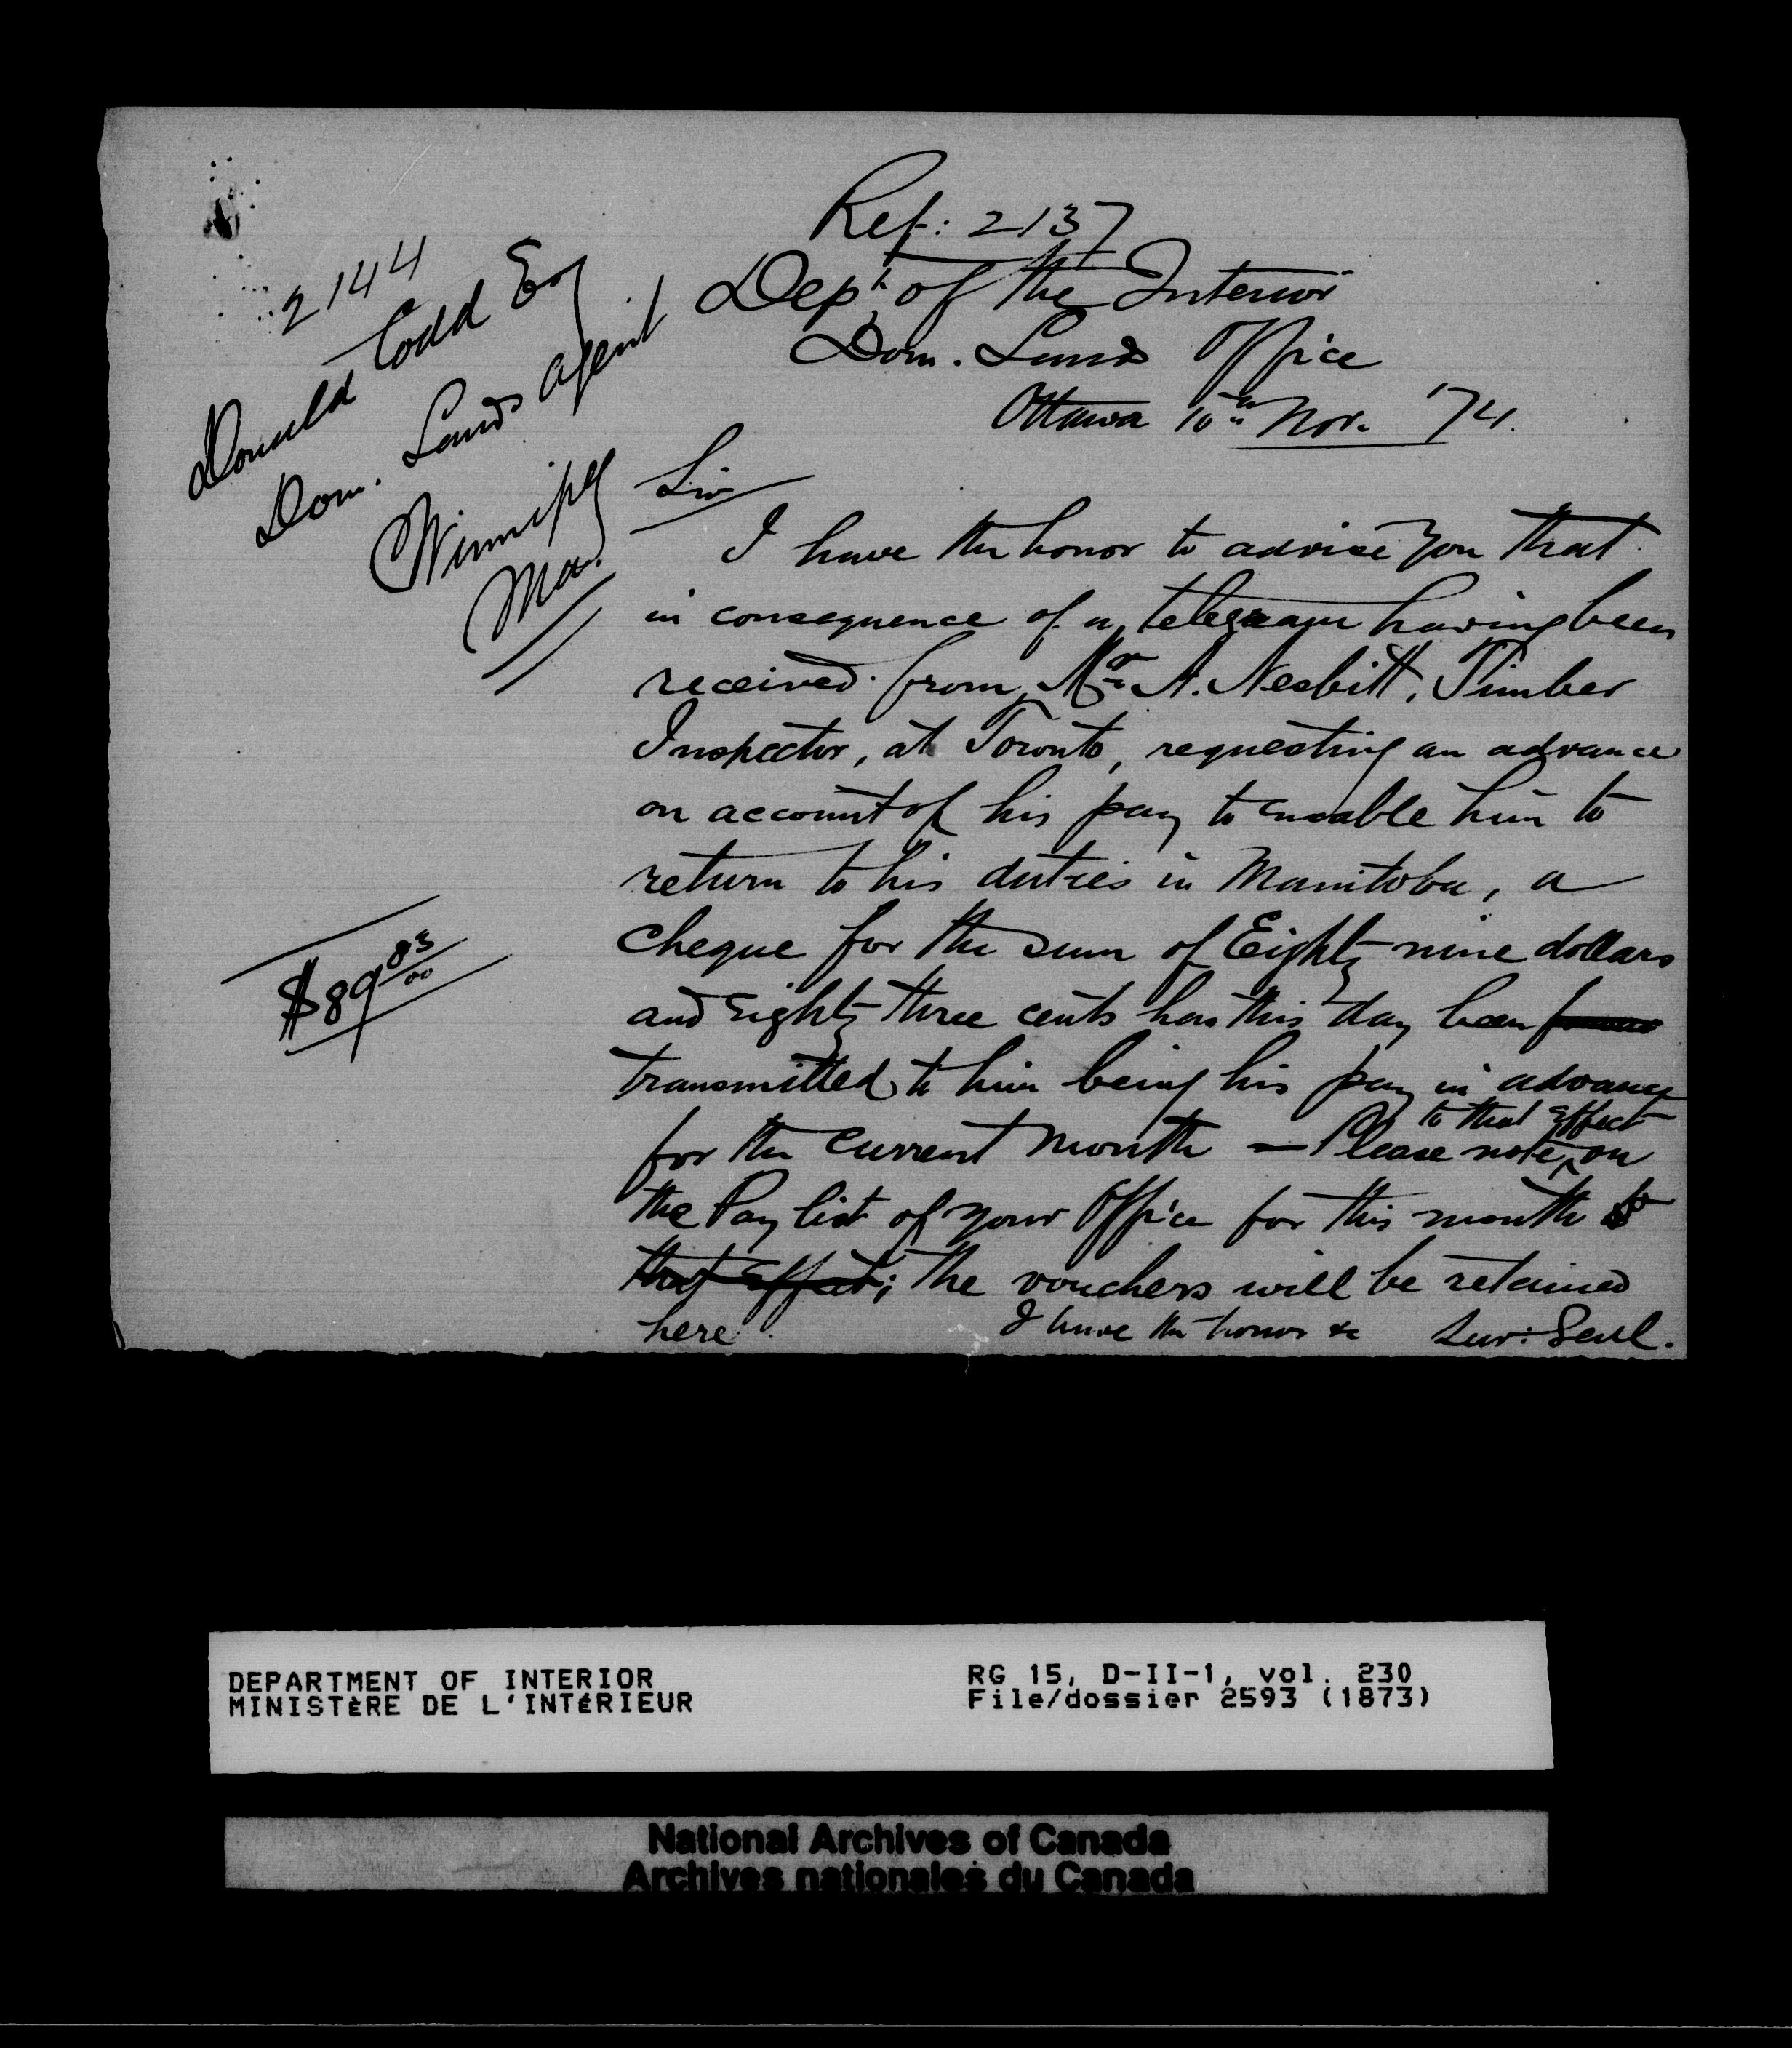 Ref: 2137
2144
Donald Codd Esq
Dom. Lands Agent
Winnipeg
Ma.
Dept of the Interior
Dom. Lands Office
Ottawa 10th Nov. '74.
Sir
I have the honor to advise you that
in consequence of a telegram having been
received from Mr A. Nesbitt, Timber
Inspector, at Toronto, requesting an advance
on account of his pay to enable him to
return to his duties in Manitoba, a
cheque for the sum of Eighty nine dollars
$89 83/00
and Eighty three cents has this day been
transmitted to him being his pay in advance
for the current month — Please note to that effect on
the Pay list of your Office for this month to
that effect; the vouchers will be retained
here
I have the honor &c
Sur: Genl.
DEPARTMENT OF INTERIOR
MINISTÈRE DE L'INTÉRIEUR
RG 15, D-II-1, vol. 230
File/dossier 2593 (1873)
National Archives of Canada
Archives nationales du Canada